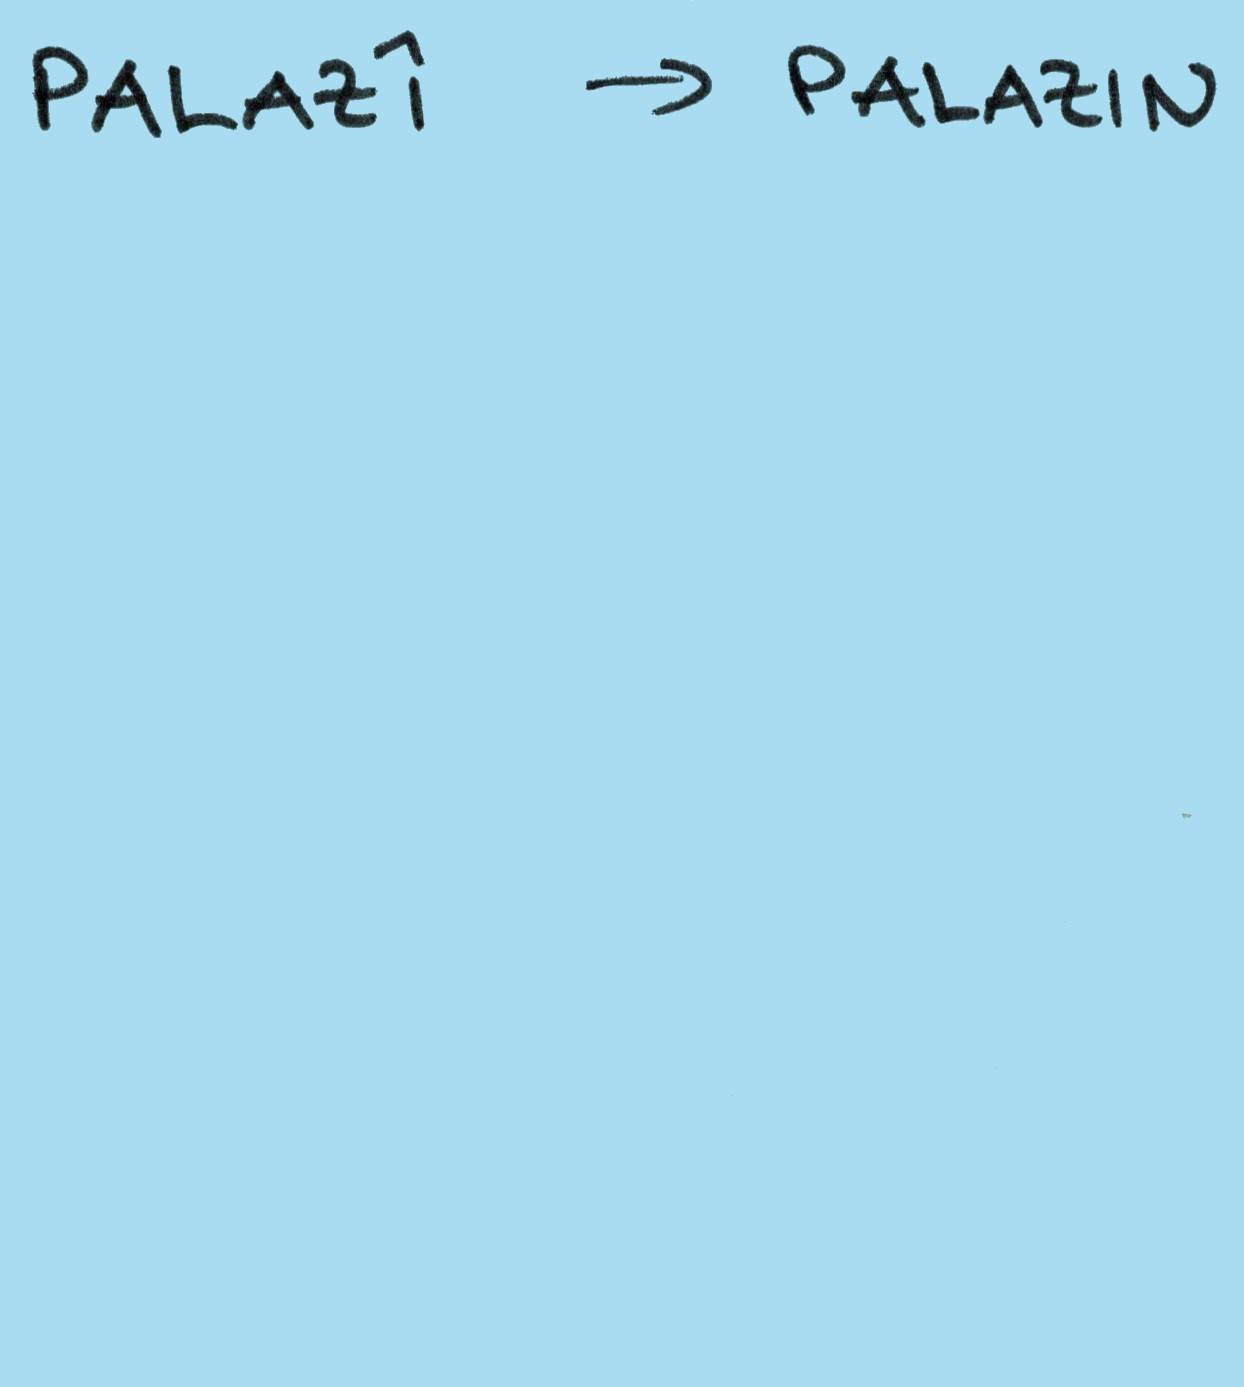 PALAZÎ → PALAZIN